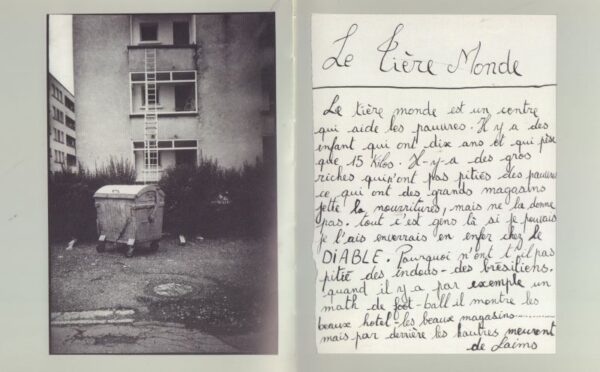 Le tière Monde
Le tière monde est un centre
qui aide les pauvres. Il y a des
enfant qui ont dix ans et qui pèse
que 15 Kilos. Il-y-a des gros
riches qui n'ont pas pitiés des pauvres
ce qui ont des grands magasins
jette la nourritures, mais ne la donne
pas. tout c'est gens là si je pouvais
je l'ais enverrais en enfer chez le
DIABLE. Pourquoi n'ont t'il pas
pitié des indous - des brésiliens.
quand il y a par exemple un
math de foot-ball il montre les
beaux hotel - les beaux magasins
mais par derrière les hautres meurent
de Laims